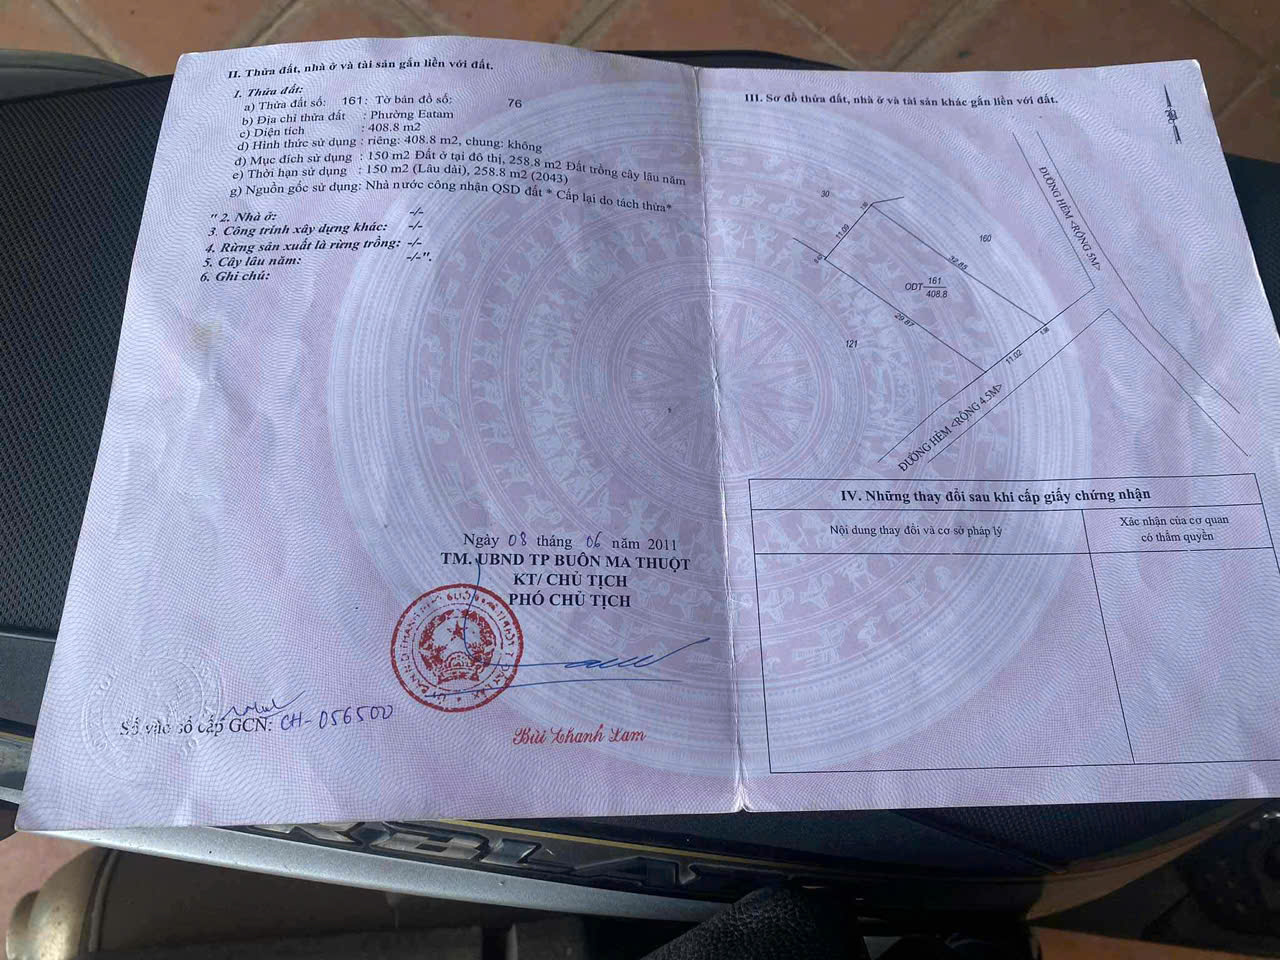 II. Thửa đất, nhà ở và tài sản gắn liền với đất.
1. Thửa đất:
a) Thửa đất số: 161: Tờ bản đồ số: 76
b) Địa chỉ thửa đất : Phường Eatam
c) Diện tích : 408.8 m2
d) Hình thức sử dụng : riêng: 408.8 m2, chung: không
đ) Mục đích sử dụng : 150 m2 Đất ở tại đô thị, 258.8 m2 Đất trồng cây lâu năm
e) Thời hạn sử dụng : 150 m2 (Lâu dài), 258.8 m2 (2043)
g) Nguồn gốc sử dụng: Nhà nước công nhận QSD đất * Cấp lại do tách thửa*
" 2. Nhà ở: -/-
3. Công trình xây dựng khác: -/-
4. Rừng sản xuất là rừng trồng: -/-
5. Cây lâu năm: -/-".
6. Ghi chú:
Ngày 08 tháng 06 năm 2011
TM. UBND TP BUÔN MA THUỘT
KT/ CHỦ TỊCH
PHÓ CHỦ TỊCH
Bùi Thanh Lam
Số vào sổ cấp GCN: CH-056500
III. Sơ đồ thửa đất, nhà ở và tài sản khác gắn liền với đất.
30
160
11.09
32.85
ODT 161
408.8
29.87
121
11.02
ĐƯỜNG HẺM <RỘNG 5M>
ĐƯỜNG HẺM <RỘNG 4.5M>
IV. Những thay đổi sau khi cấp giấy chứng nhận
Nội dung thay đổi và cơ sở pháp lý
Xác nhận của cơ quan
có thẩm quyền